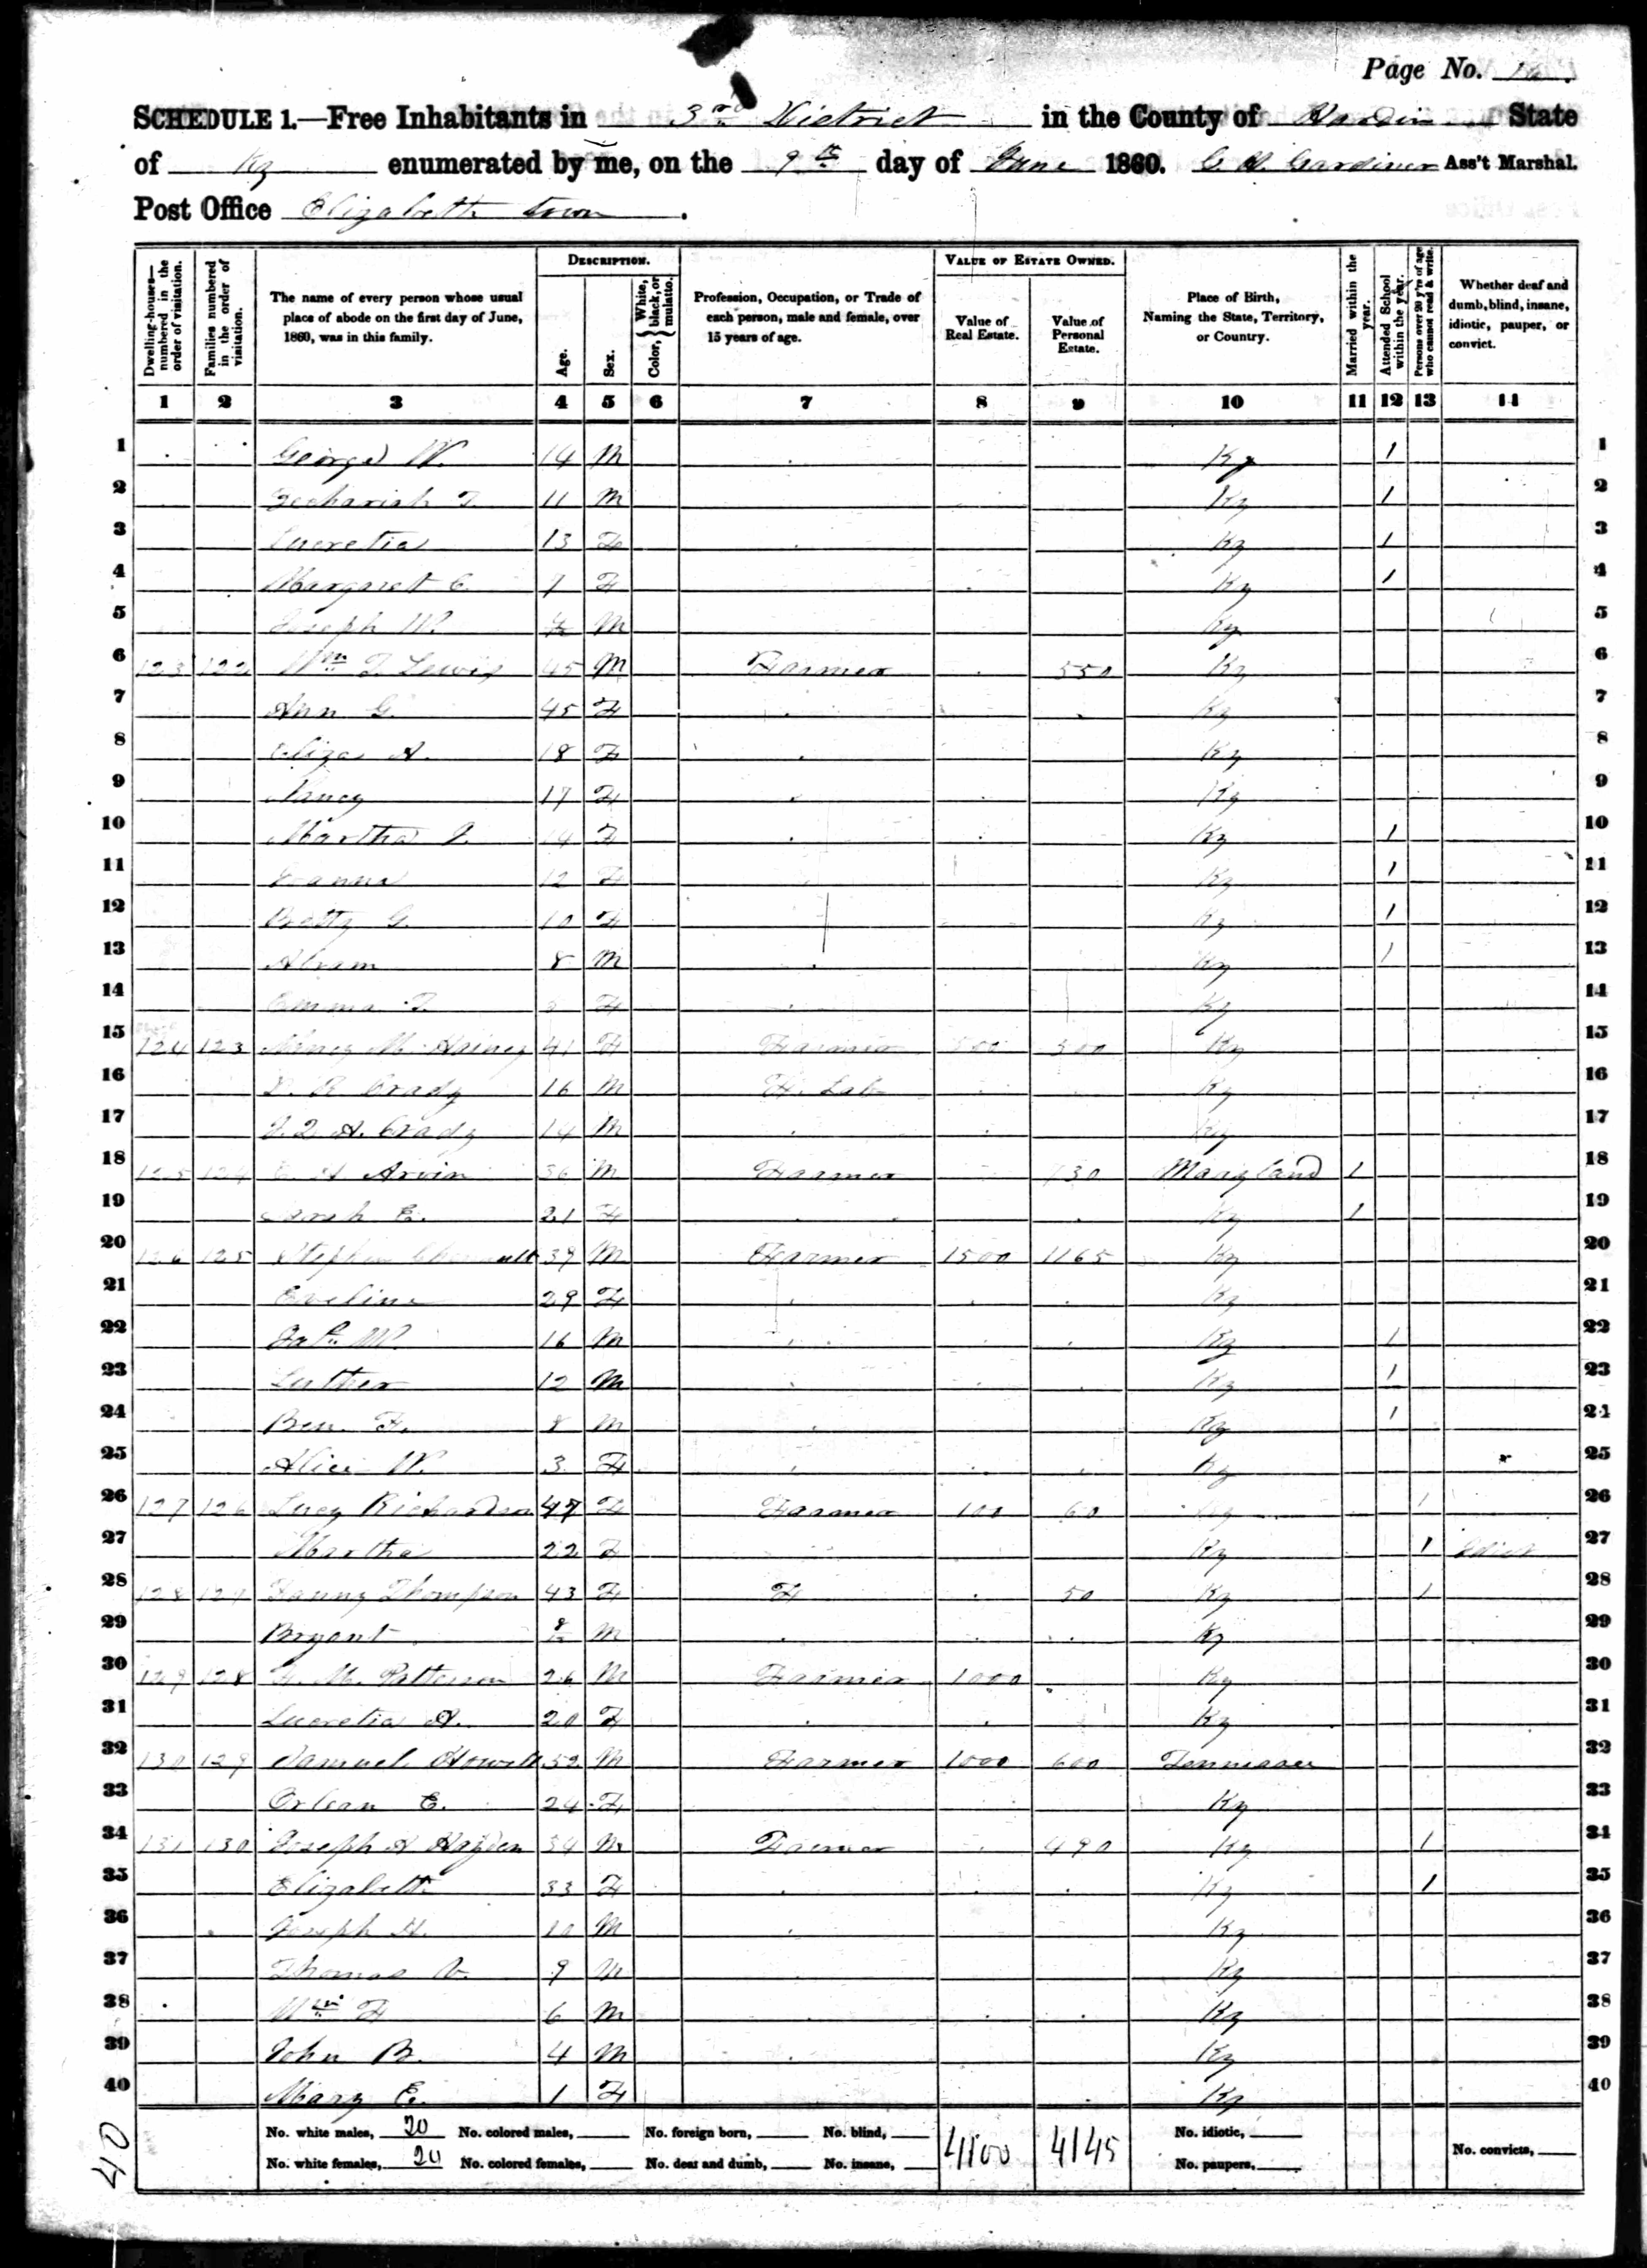 Page No.
SCHEDULE 1.—Free Inhabitants in 3rd District in the County of Hardin State
of Ky enumerated by me, on the 9th day of June 1860. C. H. Gardiner Ass't Marshal.
Post Office Elizabeth town.
Dwelling-houses—numbered in the order of visitation.
Families numbered in the order of visitation.
The name of every person whose usual place of abode on the first day of June, 1860, was in this family.
DESCRIPTION.
Age.
Sex.
Color, { White, black, or mulatto.
Profession, Occupation, or Trade of each person, male and female, over 15 years of age.
VALUE OF ESTATE OWNED.
Value of Real Estate.
Value of Personal Estate.
Place of Birth, Naming the State, Territory, or Country.
Married within the year.
Attended School within the year.
Persons over 20 y'rs of age who cannot read & write.
Whether deaf and dumb, blind, insane, idiotic, pauper, or convict.
1 2 3 4 5 6 7 8 9 10 11 12 13 14
1 George W. 14 M Ky 1 1
2 Zechariah T. 11 M Ky 1 2
3 Lucretia 13 F Ky 1 3
4 Margaret E. 7 F Ky 1 4
5 Joseph W. M Ky 5
6 123 122 Wm T. Lewis 45 M Farmer 550 Ky 6
7 Ann G. 45 F Ky 7
8 Eliza A. 18 F Ky 8
9 Nancy 17 F Ky 9
10 Martha J. 14 F Ky 1 10
11 12 F Ky 1 11
12 Betty G. 10 F Ky 1 12
13 Abram 8 M Ky 1 13
14 Emma F. F Ky 14
15 124 123 Nancy M. 41 F Farmer 500 300 Ky 15
16 Brady 16 M F. Lab Ky 16
17 J. Q. A. Brady 14 M Ky 17
18 125 124 Arvin 36 M Farmer 130 Maryland 1 18
19 Sarah E. 21 F Ky 1 19
20 126 125 Stephen 39 M Farmer 1500 1165 Ky 20
21 Eveline 29 F Ky 21
22 W. 16 M Ky 1 22
23 Luther 12 M Ky 1 23
24 Ben. F. 8 M Ky 1 24
25 Alice W. 3 F Ky 25
26 127 126 Lucy Richardson 47 F Farmer 100 60 Ky 1 26
27 Martha 22 F Ky 1 Idiot 27
28 128 127 Fanny Thompson 43 F F 50 Ky 1 28
29 Bryant M Ky 29
30 129 128 M. Patterson 26 M Farmer 1000 Ky 30
31 Lucretia A. 20 F Ky 31
32 130 129 Samuel Howell 52 M Farmer 1000 600 Tennessee 32
33 Orlean E. 24 F Ky 33
34 131 130 Joseph A Hayden 34 M Farmer 490 Ky 1 34
35 Elizabeth 33 F Ky 1 35
36 Joseph H. 10 M Ky 36
37 Thomas 9 M Ky 37
38 Wm F 6 M Ky 38
39 John B. 4 M Ky 39
40 Mary E. 1 F Ky 40
No. white males, 20 No. colored males, No. foreign born, No. blind, 4100 4145 No. idiotic,
No. white females, 20 No. colored females, No. deaf and dumb, No. insane, No. paupers, No. convicts,
40